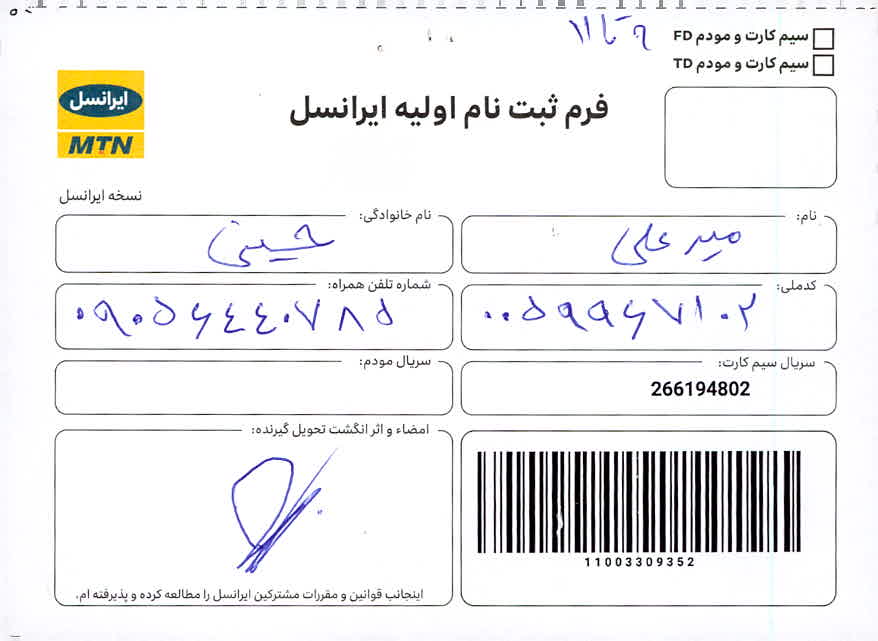 ۹ تا ۱۱
سیم کارت و مودم FD
سیم کارت و مودم TD
ایرانسل
MTN
فرم ثبت نام اولیه ایرانسل
نسخه ایرانسل
نام: میر علی
نام خانوادگی: حسینی
کدملی: ۰۰۵۹۹۶۷۱۰۲
شماره تلفن همراه: ۰۹۰۵۶۴۴۰۷۸۵
سریال سیم کارت: 266194802
سریال مودم:
امضاء و اثر انگشت تحویل گیرنده:
اینجانب قوانین و مقررات مشترکین ایرانسل را مطالعه کرده و پذیرفته ام.
11003309352